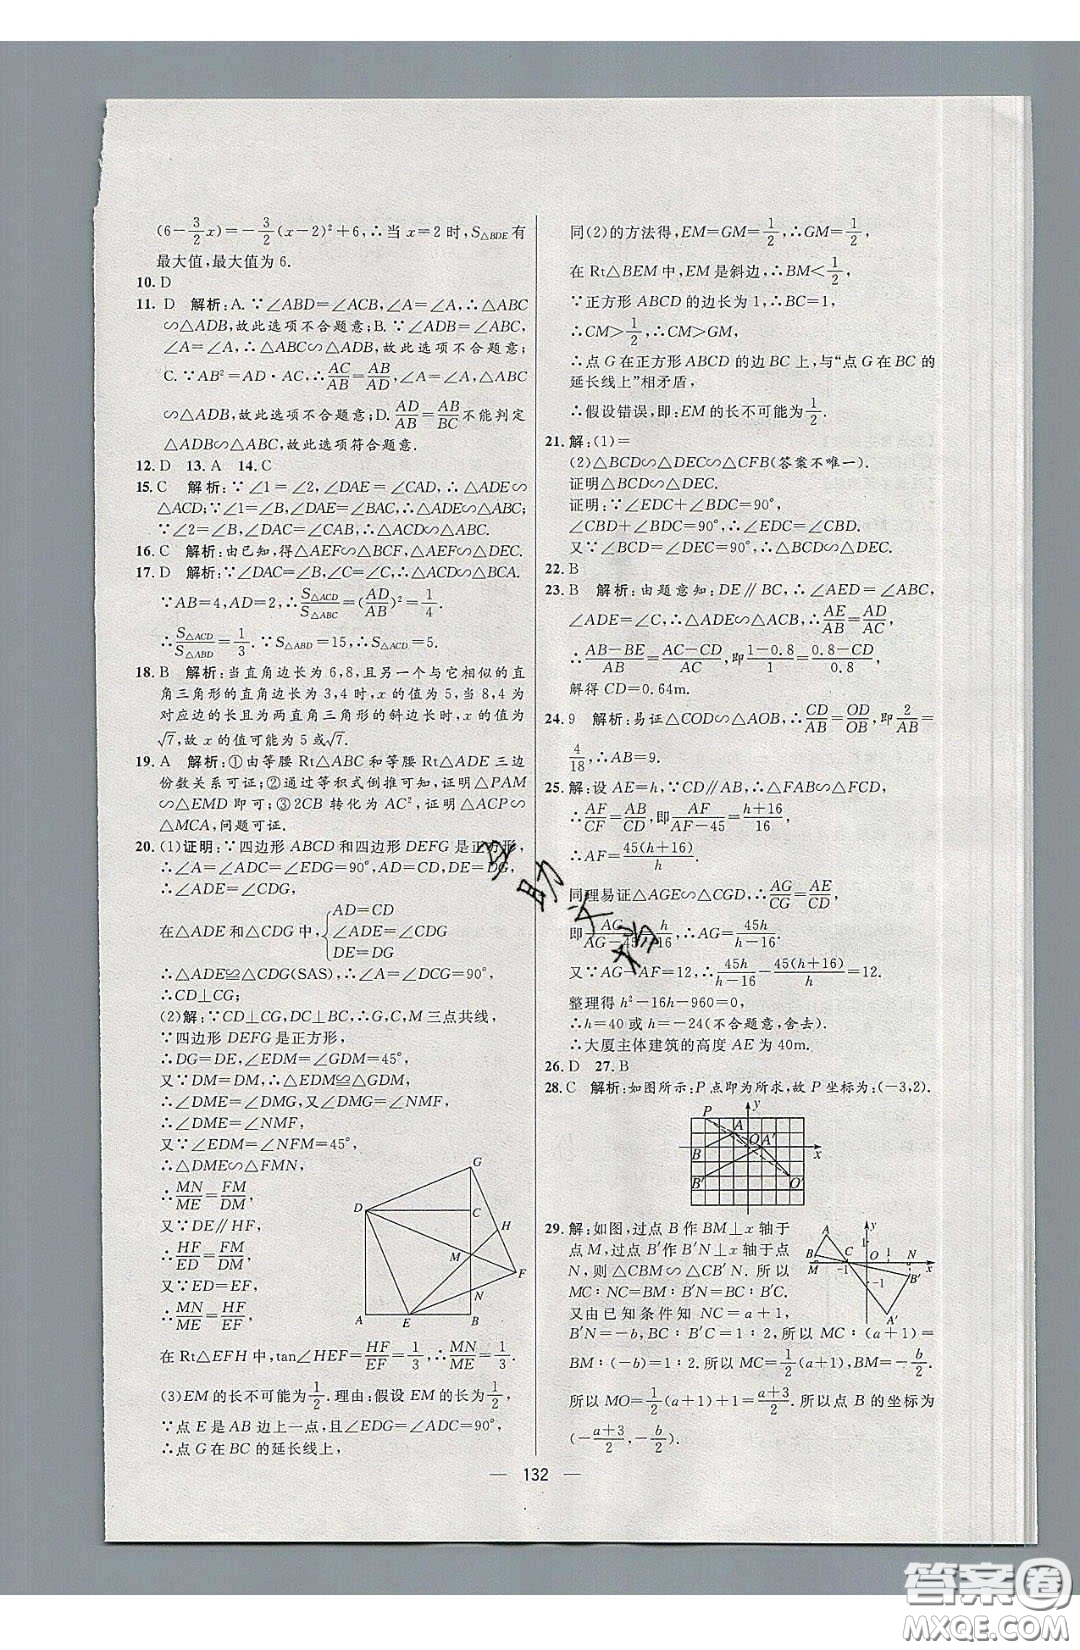 (6-3/2x)=-3/2(x-2)²+6,∴当x=2时,S△BDE有
最大值,最大值为6.
10. D
11. D 解析:A.∵∠ABD=∠ACB,∠A=∠A,∴△ABC
∽△ADB,故此选项不合题意;B.∵∠ADB=∠ABC,
∠A=∠A,∴△ABC∽△ADB,故此选项不合题意;
C.∵AB²=AD·AC,∴AC/AB=AB/AD,∠A=∠A,△ABC
∽△ADB,故此选项不合题意;D.AD/AB=AB/BC不能判定
△ADB∽△ABC,故此选项符合题意.
12. D 13. A 14. C
15. C 解析:∵∠1=∠2,∠DAE=∠CAD,∴△ADE∽
△ACD;∵∠1=∠B,∠DAE=∠BAC,∴△ADE∽△ABC;
∵∠2=∠B,∠DAC=∠CAB,∴△ACD∽△ABC.
16. C 解析:由已知,得△AEF∽△BCF,△AEF∽△DEC.
17. D 解析:∵∠DAC=∠B,∠C=∠C,∴△ACD∽△BCA.
∵AB=4,AD=2,∴S△ACD/S△ABC=(AD/AB)²=1/4.
∴S△ACD/S△ABD=1/3.∵S△ABD=15,∴S△ACD=5.
18. B 解析:当直角边长为6,8,且另一个与它相似的直
角三角形的直角边长为3,4时,x的值为5,当8,4为
对应边的长且为两直角三角形的斜边长时,x的值为
√7,故x的值可能为5或√7.
19. A 解析:①由等腰Rt△ABC和等腰Rt△ADE三边
份数关系可证;②通过等积式倒推可知,证明△PAM
∽△EMD即可;③2CB转化为AC²,证明△ACP∽
△MCA,问题可证.
20. (1)证明:∵四边形ABCD和四边形DEFG是正方形,
∴∠A=∠ADC=∠EDG=90°,AD=CD,DE=DG,
∴∠ADE=∠CDG,
AD=CD
在△ADE和△CDG中,{∠ADE=∠CDG
DE=DG
∴△ADE≌△CDG(SAS),∴∠A=∠DCG=90°,
∴CD⊥CG;
(2)解:∵CD⊥CG,DC⊥BC,∴G,C,M三点共线,
∵四边形DEFG是正方形,
∴DG=DE,∠EDM=∠GDM=45°,
又∵DM=DM,∴△EDM≌△GDM,
∴∠DME=∠DMG,又∠DMG=∠NMF,
∴∠DME=∠NMF,
又∵∠EDM=∠NFM=45°,
∴△DME∽△FMN,
∴MN/ME=FM/DM,
又∵DE∥HF,
∴HF/ED=FM/DM,
又∵ED=EF,
∴MN/ME=HF/EF,
G
D
C
H
M
F
N
A
E
B
在Rt△EFH中,tan∠HEF=HF/EF=1/3,∴MN/ME=1/3.
(3)EM的长不可能为1/2.理由:假设EM的长为1/2,
∵点E是AB边上一点,且∠EDG=∠ADC=90°,
∴点G在BC的延长线上,
同(2)的方法得,EM=GM=1/2,∴GM=1/2,
在Rt△BEM中,EM是斜边,∴BM<1/2,
∵正方形ABCD的边长为1,∴BC=1,
∴CM>1/2,∴CM>GM,
∴点G在正方形ABCD的边BC上,与“点G在BC的
延长线上”相矛盾,
∴假设错误,即:EM的长不可能为1/2.
21. 解:(1)=
(2)△BCD∽△DEC∽△CFB(答案不唯一).
证明△BCD∽△DEC.
证明:∵∠EDC+∠BDC=90°,
∠CBD+∠BDC=90°,∴∠EDC=∠CBD.
又∵∠BCD=∠DEC=90°,∴△BCD∽△DEC.
22. B
23. B 解析:由题意知:DE∥BC,∴∠AED=∠ABC,
∠ADE=∠C,∴△ADE∽△ACB,∴AE/AB=AD/AC,
∴(AB-BE)/AB=(AC-CD)/AC,即(1-0.8)/1=(0.8-CD)/0.8,
解得CD=0.64m.
24. 9 解析:易证△COD∽△AOB,∴CD/AB=OD/OB,即2/AB=
4/18,∴AB=9.
25. 解:设AE=h,∵CD∥AB,∴△FAB∽△FCD,
∴AF/CF=AB/CD,即AF/(AF-45)=(h+16)/16,
∴AF=45(h+16)/h.
同理易证△AGE∽△CGD,∴AG/CG=AE/CD,
即AG/(AG-45)=h/(h-16),∴AG=45h/(h-16).
又∵AG-AF=12,∴45h/(h-16)-45(h+16)/h=12.
整理得h²-16h-960=0,
∴h=40或h=-24(不合题意,舍去).
∴大厦主体建筑的高度AE为40m.
26. D 27. B
28. C 解析:如图所示:P点即为所求,故P坐标为:(-3,2).
P
y
A
B
O
A′
x
B′
O′
29. 解:如图,过点B作BM⊥x轴于
点M,过点B′作B′N⊥x轴于点
N,则△CBM∽△CB′N.所以
MC:NC=BM:B′N=BC:B′C.
又由已知条件知NC=a+1,
B′N=-b,BC:B′C=1:2,所以MC:(a+1)=
BM:(-b)=1:2.所以MC=1/2(a+1),BM=-b/2.
所以MO=1/2(a+1)+1=(a+3)/2.所以点B的坐标为
(-(a+3)/2,-b/2).
y
A
1
B
C
O
1
N
M
-1
x
-1
B′
A′
— 132 —
答案圈
MXQE.COM